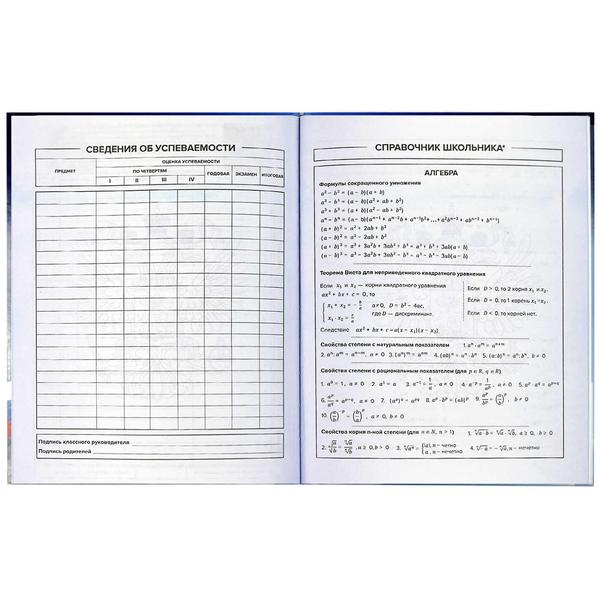 СВЕДЕНИЯ ОБ УСПЕВАЕМОСТИ
ПРЕДМЕТ
ОЦЕНКА УСПЕВАЕМОСТИ
ПО ЧЕТВЕРТЯМ
ГОДОВАЯ
ЭКЗАМЕН
ИТОГОВАЯ
I II III IV
Подпись классного руководителя
Подпись родителей
СПРАВОЧНИК ШКОЛЬНИКА*
АЛГЕБРА
Формулы сокращенного умножения
a² − b² = (a − b)(a + b)
a³ − b³ = (a − b)(a² + ab + b²)
a³ + b³ = (a + b)(a² − ab + b²)
aⁿ − bⁿ = (a − b)(aⁿ⁻¹ + aⁿ⁻²b + aⁿ⁻³b²+...+ a²bⁿ⁻³ + abⁿ⁻² + bⁿ⁻¹)
(a + b)² = a² + 2ab + b²
(a − b)² = a² − 2ab + b²
(a + b)³ = a³ + 3a²b + 3ab² + b³ = a³ + b³ + 3ab(a + b)
(a − b)³ = a³ − 3a²b + 3ab² − b³ = a³ − b³ − 3ab(a − b)
Теорема Виета для неприведенного квадратного уравнения
Если x₁ и x₂ — корни квадратного уравнения
ax² + bx + c = 0, то
x₁ + x₂ = − b/a a≠0, D = b² − 4ac,
x₁ · x₂ = c/a где D — дискриминант.
Если D > 0, то 2 корня x₁ и x₂.
Если D = 0, то 1 корень x₁=x₂.
Если D < 0, то корней нет.
Следствие ax² + bx + c = a(x − x₁)(x − x₂)
Свойства степени с натуральным показателем 1. aⁿ · aᵐ = aⁿ⁺ᵐ
2. aⁿ: aᵐ = aⁿ⁻ᵐ, a ≠ 0 3. (aⁿ)ᵐ = aⁿᵐ 4. (ab)ⁿ = aⁿ · bⁿ 5. (a: b)ⁿ = aⁿ: bⁿ, b ≠ 0
Свойства степени с рациональным показателем (для p ∈ R, q ∈ R)
1. a⁰ = 1, a ≠ 0 2. a¹ = a 3. a⁻¹ = 1/a, a ≠ 0 4. a⁻ᵖ = 1/aᵖ, a ≠ 0 5. aᵖ · a^q = aᵖ⁺^q
6. aᵖ/a^q = aᵖ⁻^q, a ≠ 0 7. (aᵖ)^q = aᵖ^q 8. aᵖ · bᵖ = (ab)ᵖ 9. aᵖ/bᵖ = (a/b)ᵖ, b ≠ 0
10. (a/b)⁻ᵖ = (b/a)ᵖ, a ≠ 0, b ≠ 0
Свойства корня n-ной степени (для n ∈ N, n > 1) 1. ⁿ√a · b = ⁿ√a · ⁿ√b, a ≥ 0, b ≥ 0
2. ⁿ√a/b = ⁿ√a/ⁿ√b, a ≥ 0, b > 0 3. ⁿ√aⁿ = { |a|, n − четно a, n − нечетно 4. ⁿ√−a = − ⁿ√a, n − нечетно